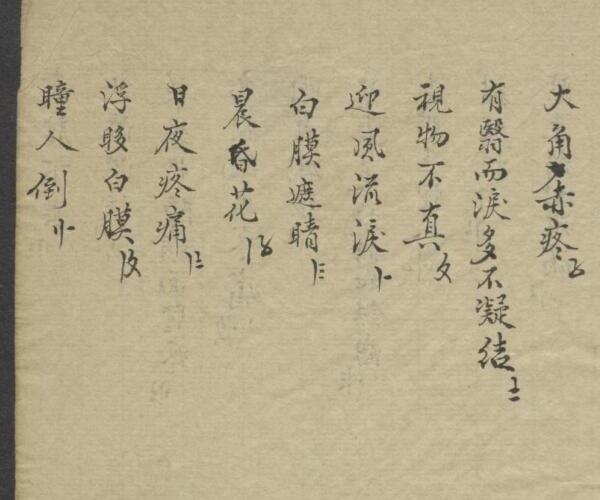 大角赤疼
有翳而淚多不凝結
視物不真
迎風流淚
白膜遮睛
晨昏花
日夜疼痛
浮眵白膜
瞳人倒